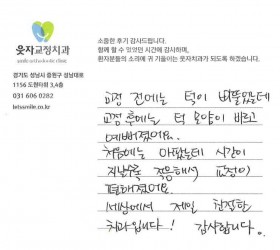 웃자교정치과
경기도 성남시 중원구 성남대로
1156 도원타워 3,4층
031 606 0282
letssmile.co.kr
소중한 후기 감사드립니다.
함께 할 수 있었던 시간에 감사하며,
환자분들의 소리에 귀 기울이는 웃자치과가 되도록 하겠습니다.
교정 전에는 턱이 삐뚤었는데
교정 후에는 턱 모양이 바르고
예뻐졌어요.
처음에는 아팠는데 시간이
지날수록 적응해서 교정이
편해졌어요.
세상에서 제일 친절한
치과입니다! 감사합니다.